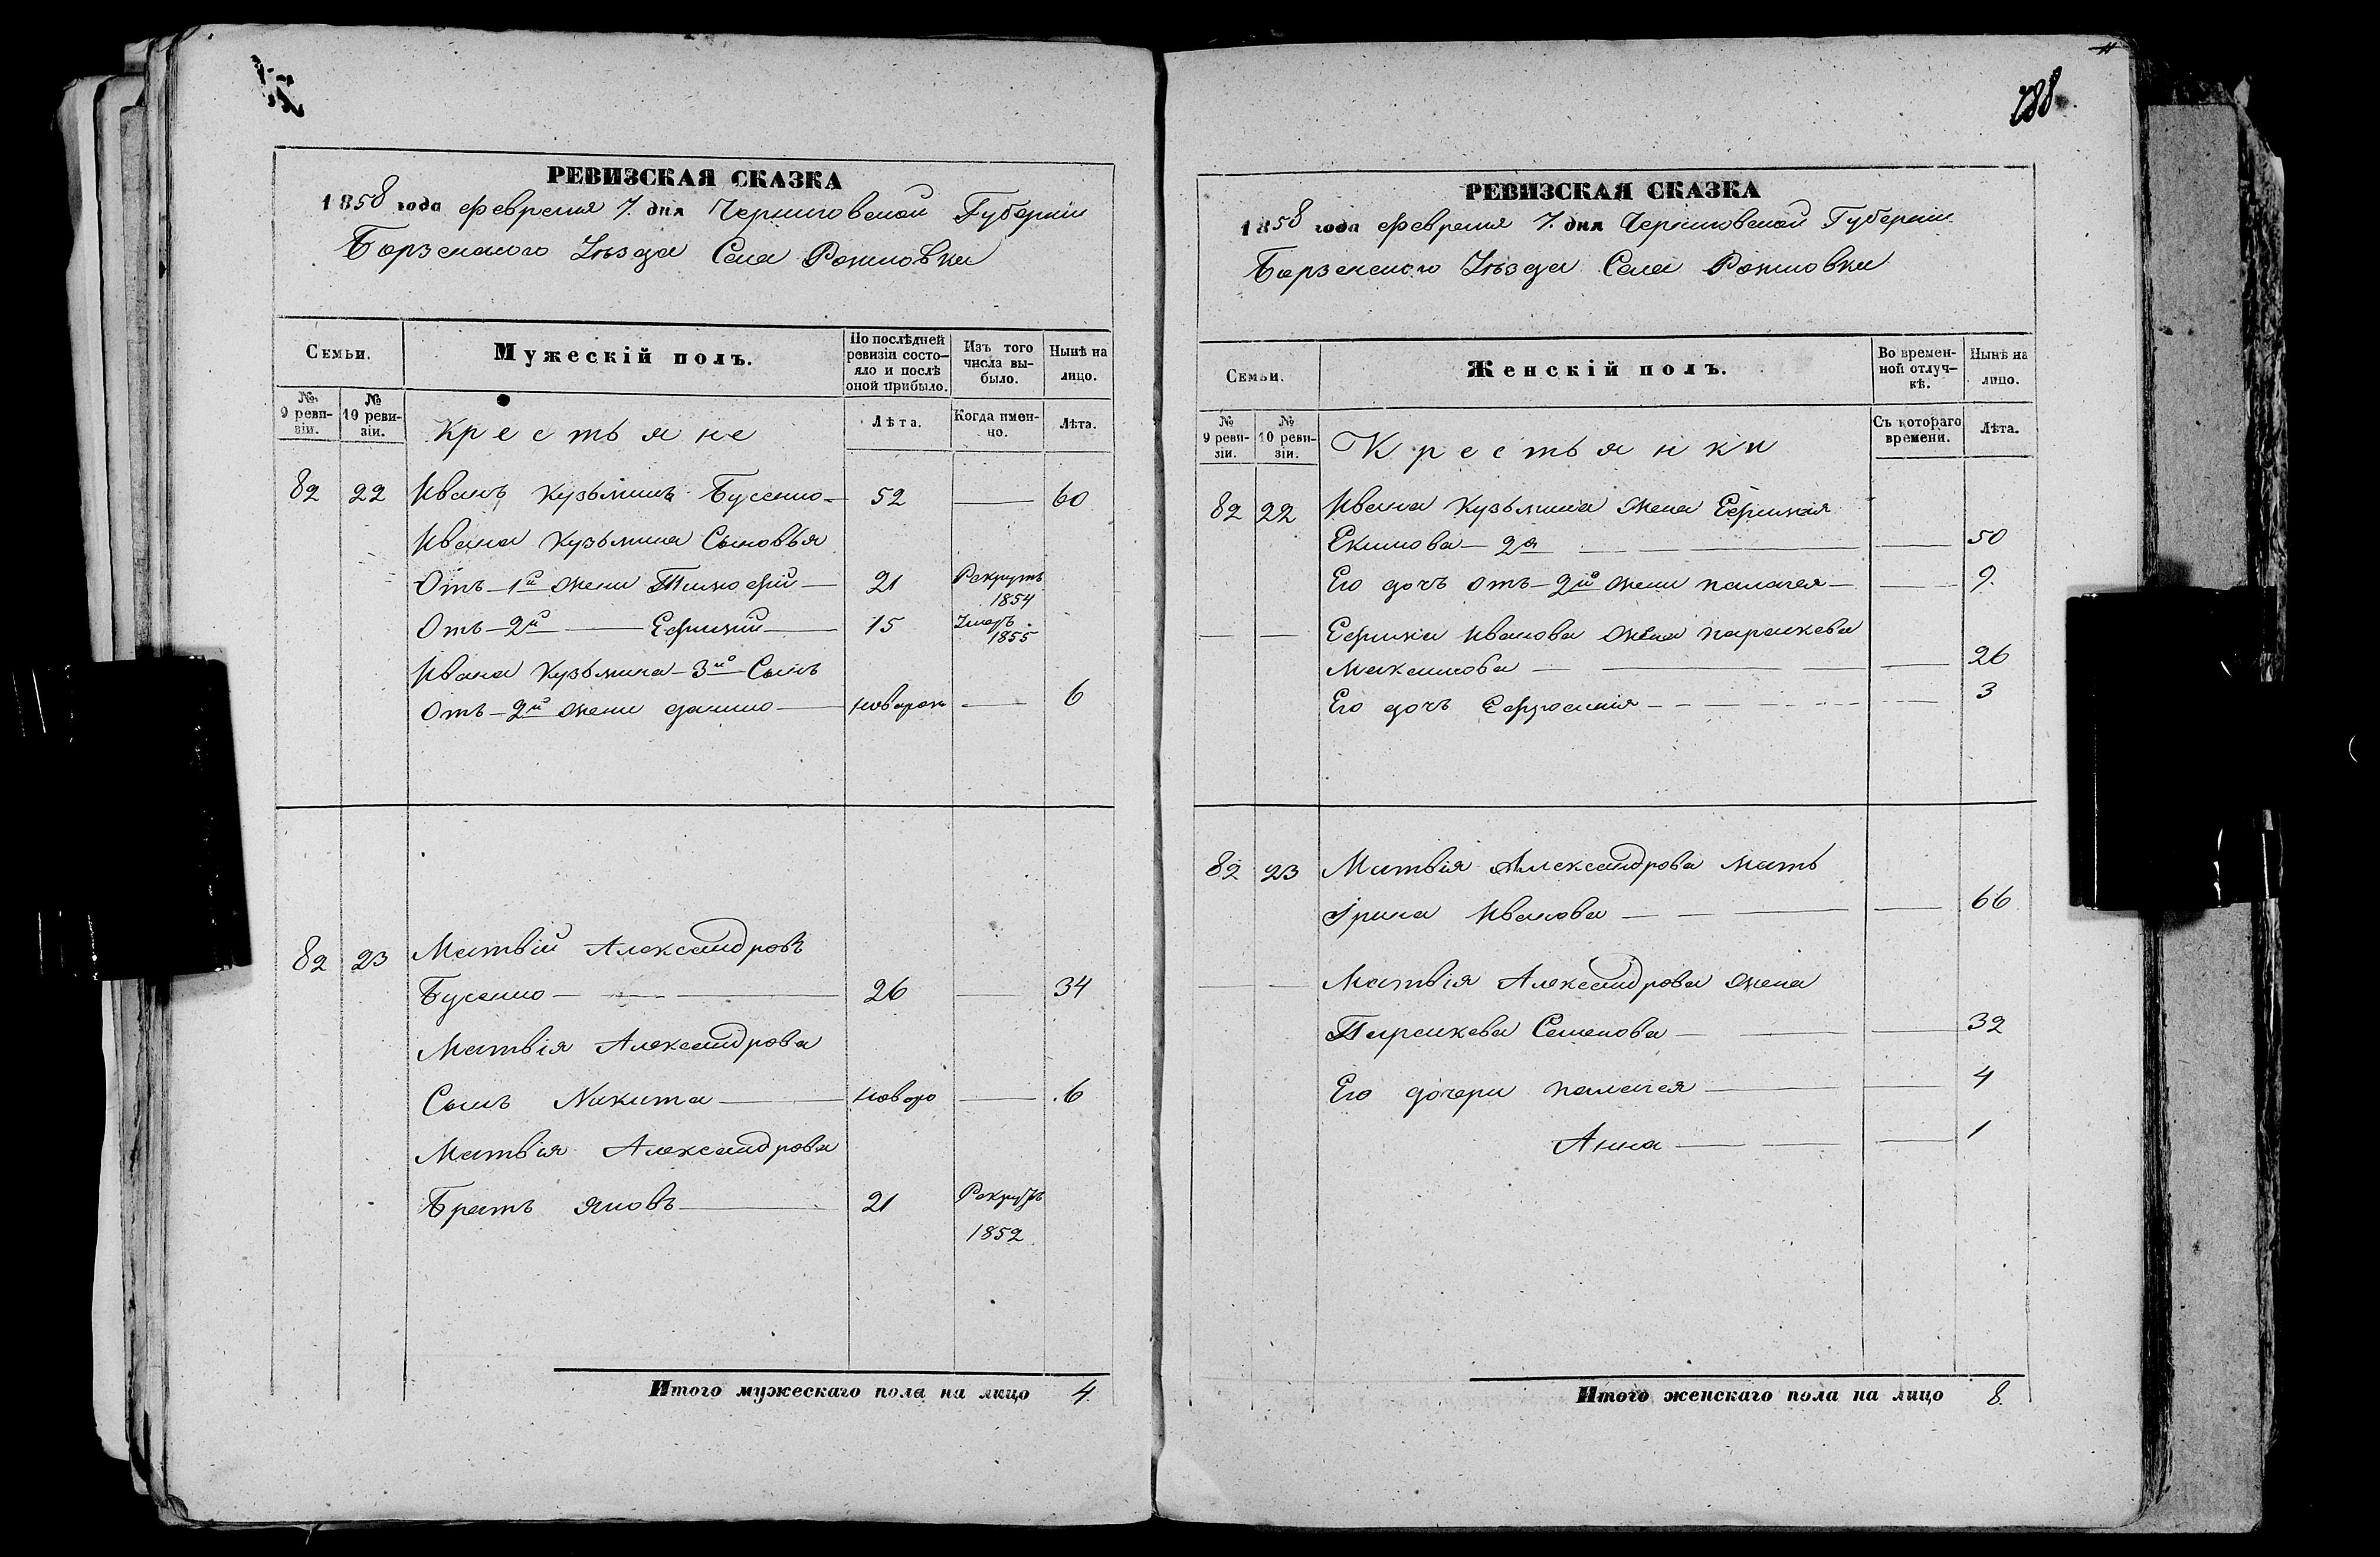 РЕВИЗСКАЯ СКАЗКА
1858 года Февраля 7. дня Черниговской Губерніи
Борзенского Уѣзда Села Рожновки
Семьи.
Мужескій полъ.
По послѣдней ревизіи состо-
яло и послѣ
оной прибыло.
Изъ того
числа вы-
было.
Нынѣ на
лицо.
№
9 реви-
зіи.
№
10 реви-
зіи.
Крестьяне
Лѣта.
Когда имен-
но.
Лѣта.
82 22 Иванъ Кузьминъ Бусенко 52 — 60
Ивана Кузьмина Сыновья
Отъ 1й жены Тимофей — 21 Рекрутъ
1854
Отъ 2й — Ефимий — 15 Умеръ
1855
Ивана Кузьмина 3й Сынъ
Отъ 2й жены Данило — новорож — 6
82 23 Матвій Александровъ
Бусенко — 26 — 34
Матвія Александрова
Сынъ Никита — новоро — 6
Матвія Александрова
Братъ Яковъ — 21 Рекрутъ
1852
Итого мужескаго пола на лицо 4.
188
РЕВИЗСКАЯ СКАЗКА
1858 года Февраля 7. дня Черниговской Губерніи
Борзенского Уѣзда Села Рожновки
Семьи.
Женскій полъ.
Во времен-
ной отлуч-
кѣ.
Нынѣ на
лицо.
№
9 реви-
зіи.
№
10 реви-
зіи.
Крестьянки
Съ котораго
времени.
Лѣта.
82 22 Ивана Кузьмина жена Ефимия
Екимова — 2я — 50
Его дочь отъ 2й жены Палагея — 9.
— — Ефима Иванова жена Параскева
Максимова — 26
Его дочь Ефросинія — 3
82 23 Матвія Александрова мать
Ірина Иванова — 66
— — Матвія Александрова жена
Параскева Семенова — 32
Его дочери Палагея — 4
Анна — 1
Итого женскаго пола на лицо 8.